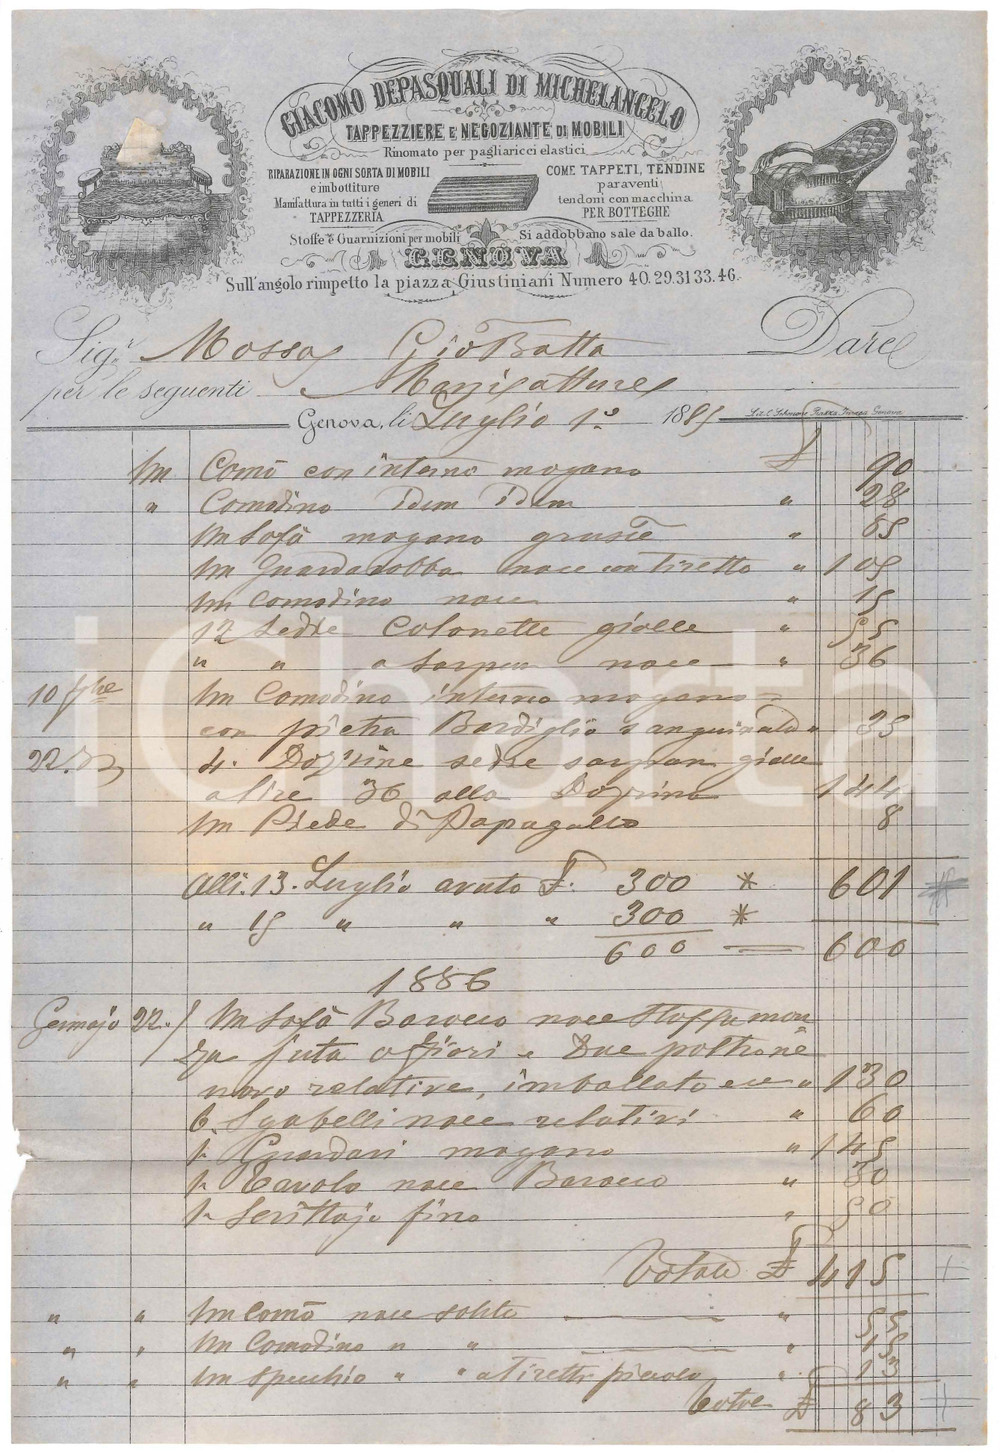 GIACOMO DEPASQUALI DI MICHELANGELO
TAPPEZZIERE E NEGOZIANTE DI MOBILI
Rinomato per pagliaricci elastici
RIPARAZIONE IN OGNI SORTA DI MOBILI
e imbottiture
Manifattura in tutti i generi di
TAPPEZZERIA
COME TAPPETI, TENDINE
paraventi
tendoni con macchina
PER BOTTEGHE
Stoffe e Guarnizioni per mobili
Si addobbano sale da ballo.
GENOVA
Sull'angolo rimpetto la piazza Giustiniani Numero 40.29.31 33.46.
Sigr. Mossa Gio Batta Dare
per le seguenti Manifatture
Genova, li Luglio 1.° 1885
Un Comò con interno mogano 90
" Comodino Idem idem " 28
Un Sofà mogano " 65
Un Guardarobba noce con tiretto " 105
Un Comodino noce " 15
12 Sedie Colonette gialle " 55
" " a noce " 36
10 Un Comodino interno mogano
con pietra Bardiglio sanguinato " 35
22. 4. Dozzine sedie gialle
a lire 36 alla Dozzina 144
Un Piede di Papagallo 8
Alli. 13. Luglio avuto £. 300 * 601
" 15 " " " 300 *
600 — 600
1886
Gennajo 22. / Un Sofà Barocco noce Stoffa
juta a fiori e Due poltrone
noce relative, imballato ecc " 130
6. Sgabelli noce relativi " 60
1. mogano " 145
1. Tavolo noce Barocco " 30
1. Scrittojo fino " 50
Totale £ 415
" " Un Comò noce solito — " 55
" " Un Comodino " " — " 15
" " Un Specchio " " a tiretto piccolo " 13
Totale £ 83
iCharta